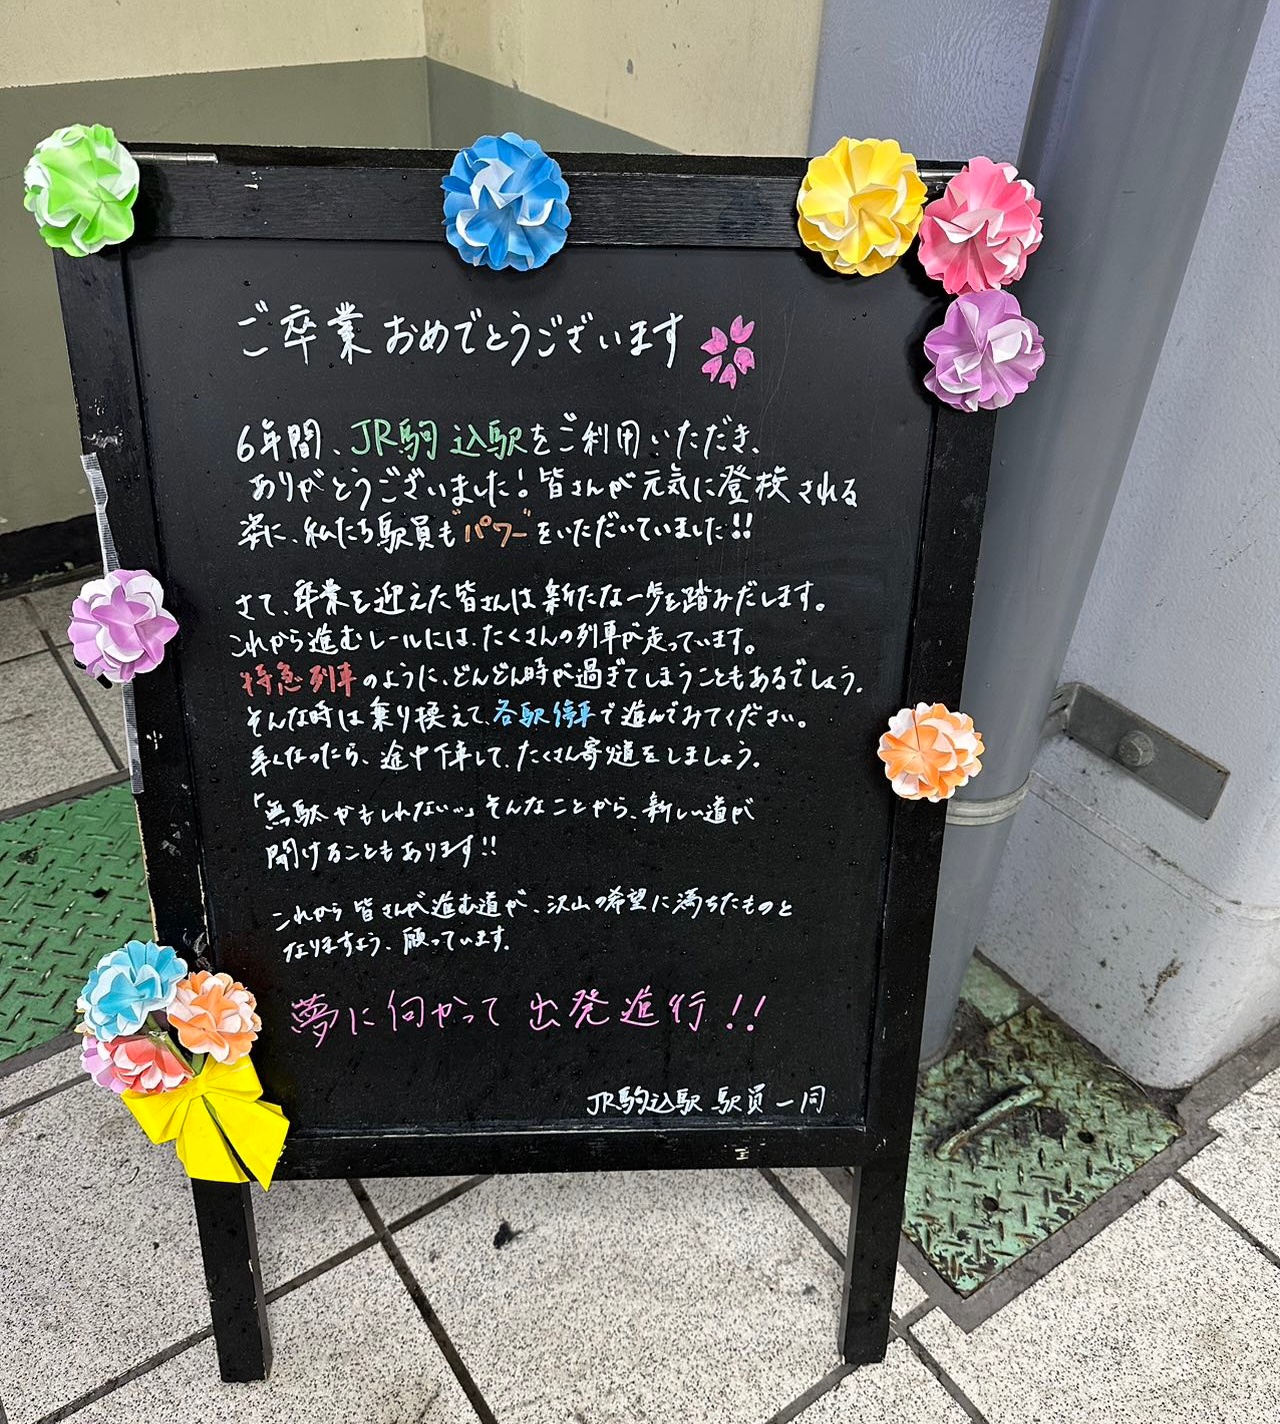 ご卒業おめでとうございます
6年間、JR駒込駅をご利用いただき、
ありがとうございました！皆さんが元気に登校される
姿に、私たち駅員も"パワー"をいただいていました!!
さて、卒業を迎えた皆さんは新たな一歩を踏みだします。
これから進むレールには、たくさんの列車が走っています。
特急列車のように、どんどん時が過ぎてしまうこともあるでしょう。
そんな時は乗り換えて、各駅停車で進んでみてください。
辛くなったら、途中下車して、たくさん寄り道をしましょう。
「無駄かもしれない…」そんなことから、新しい道が
開けることもあります!!
これから皆さんが進む道が、沢山の希望に満ちたものと
なりますよう、願っています。
夢に向かって出発進行!!
JR駒込駅 駅員一同